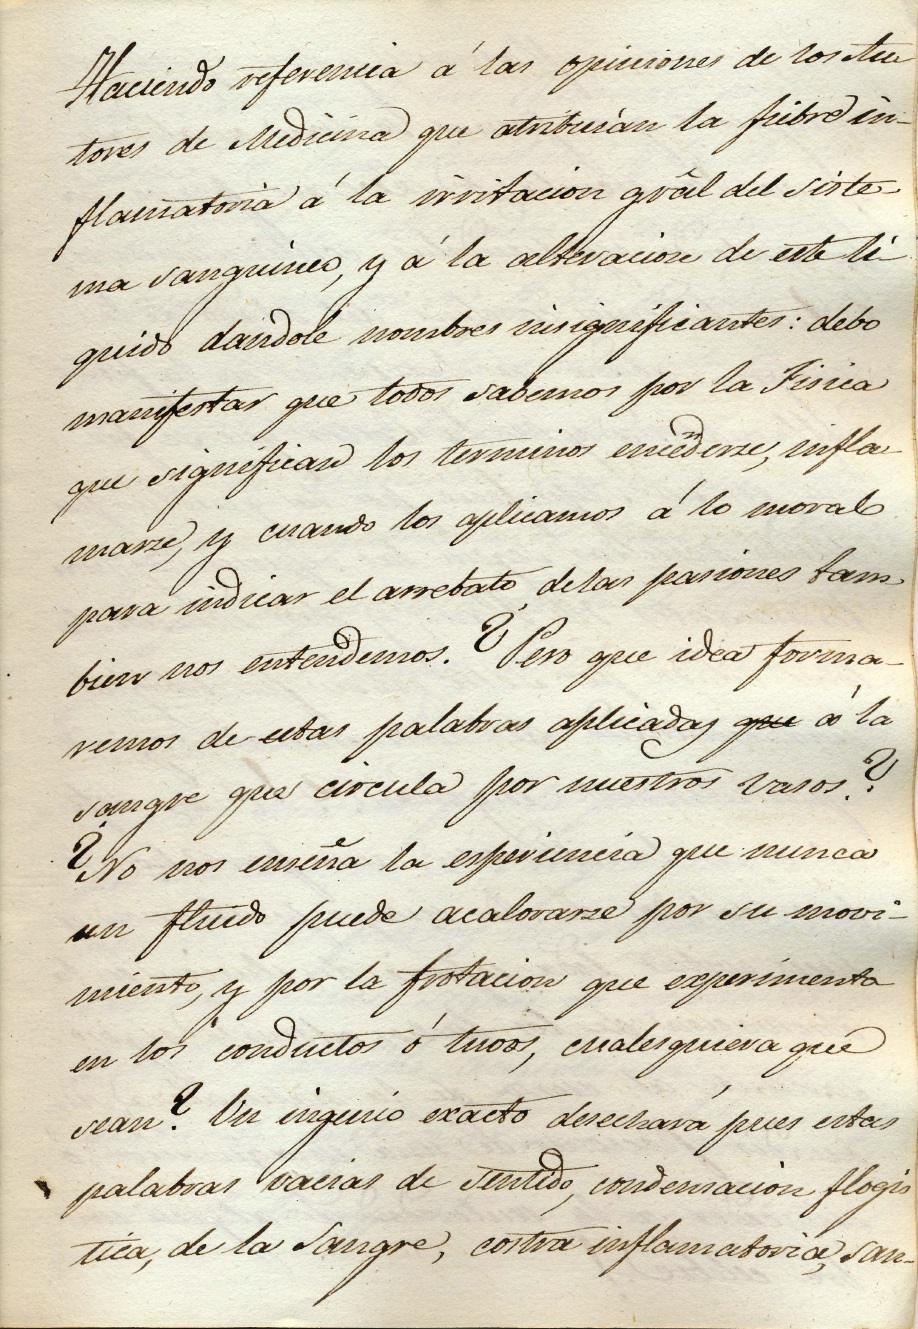 Haciendo referencia á las opiniones de los Au
tores de Medicina que atribuian la fiebre in-
flamatoria á la irritacion grâl del siste-
ma sanguineo, y á la alteracion de este li-
quido dandole nombres insignificantes: debo
manifestar que todos sabemos por la Fisica
que significan los terminos encẽderze, infla-
marze, y cuando los aplicamos á lo moral
para indicar el arrebato de las pasiones tam
bien nos entendemos. ¿Pero que idea forma-
remos de estas palabras aplicadas ~~que~~ á la
sangre que circula por nuestros vasos.?
¿No nos enseña la esperiencia que nunca
un fluido puede acalorarze por su movi-
miento, y por la frotacion que experimenta
en los conductos ó tuvos, cualesquiera que
sean? Un ingenio exacto desechará pues estas
palabras vacias de sentido, condensacion flogis
tica, de la sangre, costra inflamatoria, san-